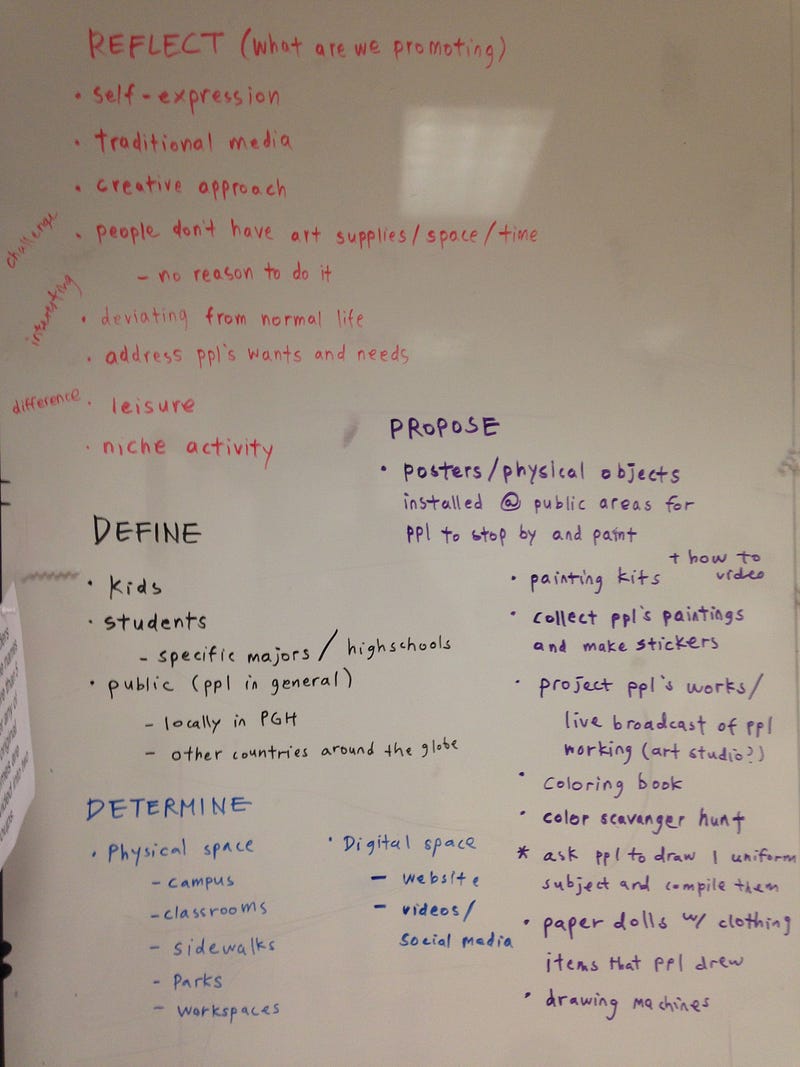 REFLECT (what are we promoting)
• self-expression
• traditional media
• creative approach
challenge
• people don't have art supplies/space/time
- no reason to do it
interesting
• deviating from normal life
• address ppl's wants and needs
difference
• leisure
• niche activity
DEFINE
• kids
• students
- specific majors/highschools
• public (ppl in general)
- locally in PGH
- other countries around the globe
DETERMINE
• Physical space
- campus
- classrooms
- sidewalks
- Parks
- workspaces
• Digital space
- website
- videos/
social media
PROPOSE
• posters/physical objects
installed @ public areas for
ppl to stop by and paint
• painting kits + how to
video
• collect ppl's paintings
and make stickers
• project ppl's works/
live broadcast of ppl
working (art studio?)
• coloring book
• color scavanger hunt
* ask ppl to draw 1 uniform
subject and compile them
• paper dolls w/ clothing
items that ppl drew
• drawing machines